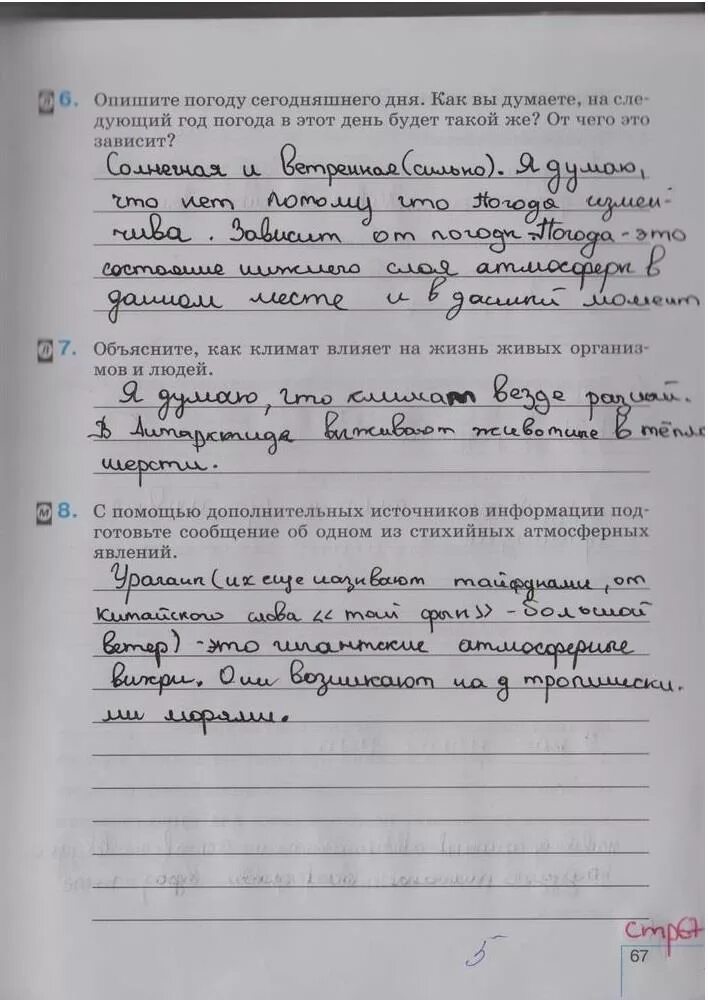 6. Опишите погоду сегодняшнего дня. Как вы думаете, на сле-
дующий год погода в этот день будет такой же? От чего это
зависит?
Солнечная и ветренная (сильно). Я думаю,
что нет потому что погода измен-
чива. Зависит от погоды. Погода - это
состояние нижнего слоя атмосферы в
данном месте и в данный момент
7. Объясните, как климат влияет на жизнь живых организ-
мов и людей.
Я думаю, что климат везде разный.
В Антарктиде выживают животные в тёпло
шерсти.
М 8. С помощью дополнительных источников информации под-
готовьте сообщение об одном из стихийных атмосферных
явлений.
Ураган (их еще называют тайфунами, от
китайского слова «тай фын» - большой
ветер) - это гигантские атмосферные
вихри. Они возникают на д тропически.
ми морями.
стр67
5
67